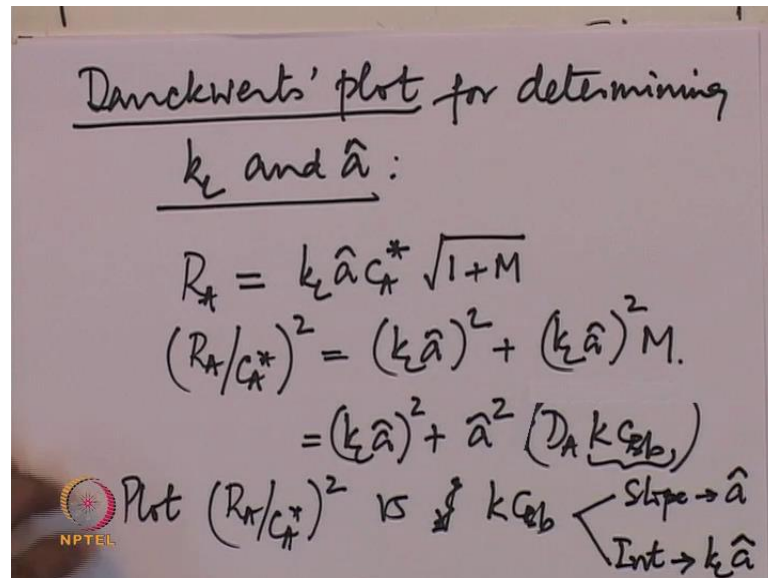 Danckwerts' plot for determining
k_L and â :
R_A = k_L â C_A^* √(1+M)
(R_A/C_A^*)² = (k_L â)² + (k_L â)² M.
= (k_L â)² + â² (D_A k C_Bb,)
Plot (R_A/C_A^*)² vs k C_Bb
Slope → â
Int → k_L â
NPTEL